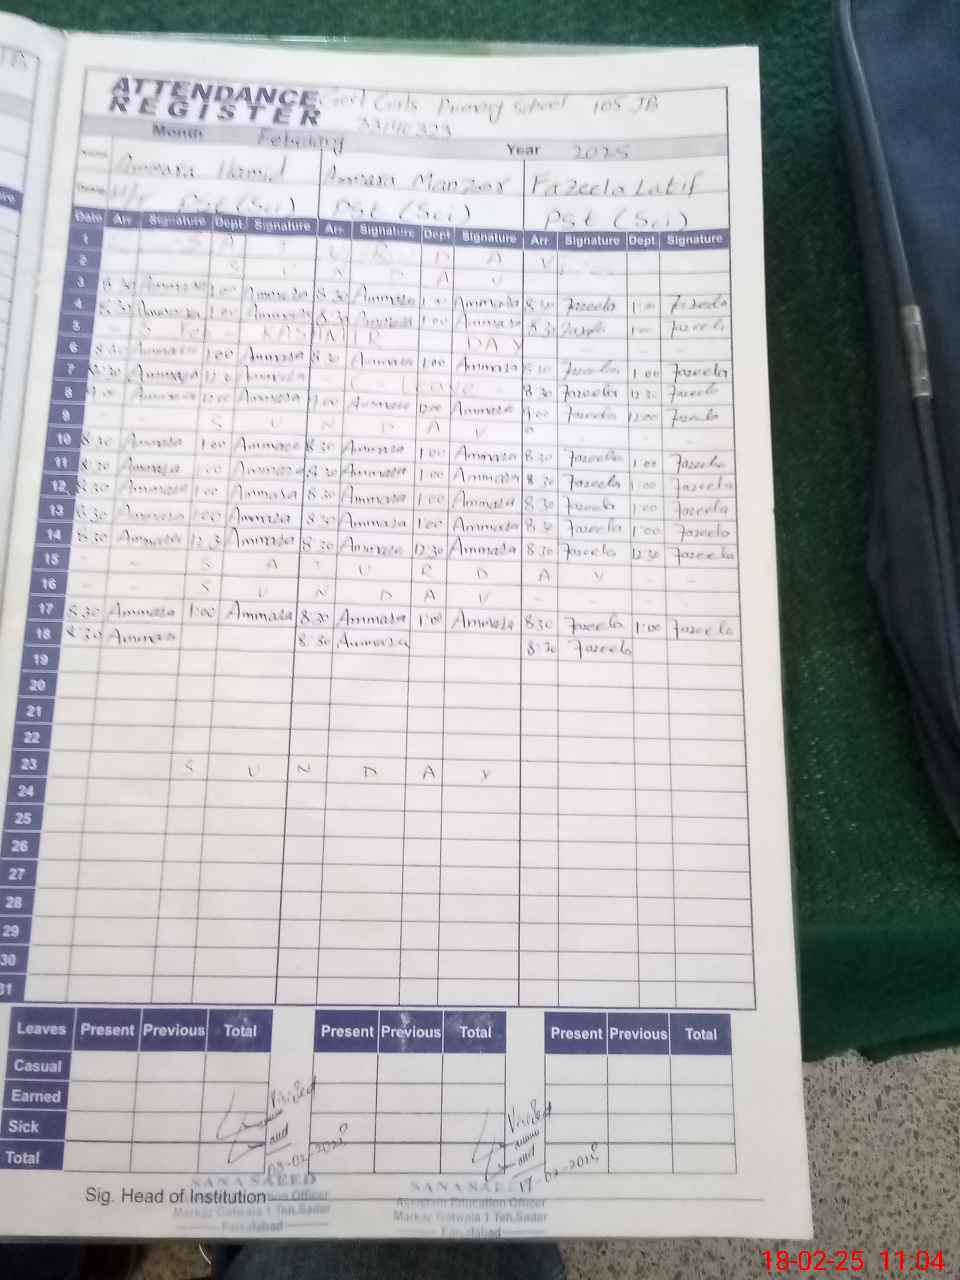 ATTENDANCE REGISTER Govt Girls Primary School 105 JB
33140323
Month February Year 2025
Ammara Hamid Ammara Manzoor Fazeela Latif
H/T PST (Sci) PST (Sci) PST (Sci)
Date Arr. Signature Dept. Signature Arr. Signature Dept. Signature Arr. Signature Dept. Signature
1 S A T U R D A Y
2 S U N D A Y
3 8:30 Ammara 1:00 Ammara 8:30 Ammara 1:00 Ammara 8:30 Fazeela 1:00 Fazeela
4 8:30 Ammara 1:00 Ammara 8:30 Ammara 1:00 Ammara 8:30 Fazeela 1:00 Fazeela
5 KASHMIR DAY
6 8:30 Ammara 1:00 Ammara 8:30 Ammara 1:00 Ammara 8:30 Fazeela 1:00 Fazeela
7 8:30 Ammara 12:30 Ammara - C - Leave - 8:30 Fazeela 12:30 Fazeela
8 9:00 Ammara 12:00 Ammara 9:00 Ammara 12:00 Ammara 9:00 Fazeela 12:00 Fazeela
9 S U N D A Y
10 8:30 Ammara 1:00 Ammara 8:30 Ammara 1:00 Ammara 8:30 Fazeela 1:00 Fazeela
11 8:30 Ammara 1:00 Ammara 8:30 Ammara 1:00 Ammara 8:30 Fazeela 1:00 Fazeela
12 8:30 Ammara 1:00 Ammara 8:30 Ammara 1:00 Ammara 8:30 Fazeela 1:00 Fazeela
13 8:30 Ammara 1:00 Ammara 8:30 Ammara 1:00 Ammara 8:30 Fazeela 1:00 Fazeela
14 8:30 Ammara 12:30 Ammara 8:30 Ammara 12:30 Ammara 8:30 Fazeela 12:30 Fazeela
15 - - S A T U R D A Y - -
16 - - S U N D A Y - - - -
17 8:30 Ammara 1:00 Ammara 8:30 Ammara 1:00 Ammara 8:30 Fazeela 1:00 Fazeela
18 8:30 Ammara 8:30 Ammara 8:30 Fazeela
19
20
21
22
23 S U N D A Y
24
25
26
27
28
29
30
31
Leaves Present Previous Total Present Previous Total Present Previous Total
Casual
Earned
Sick
Total
Visited and 03-02-2025
Visited and 17-02-2025
Sig. Head of Institution
SANA SAEED
Assistant Education Officer
Markaz Gatwala 1 Teh.Sadar
Faisalabad
SANA SAEED
Assistant Education Officer
Markaz Gatwala 1 Teh.Sadar
Faisalabad
18-02-25 11:04